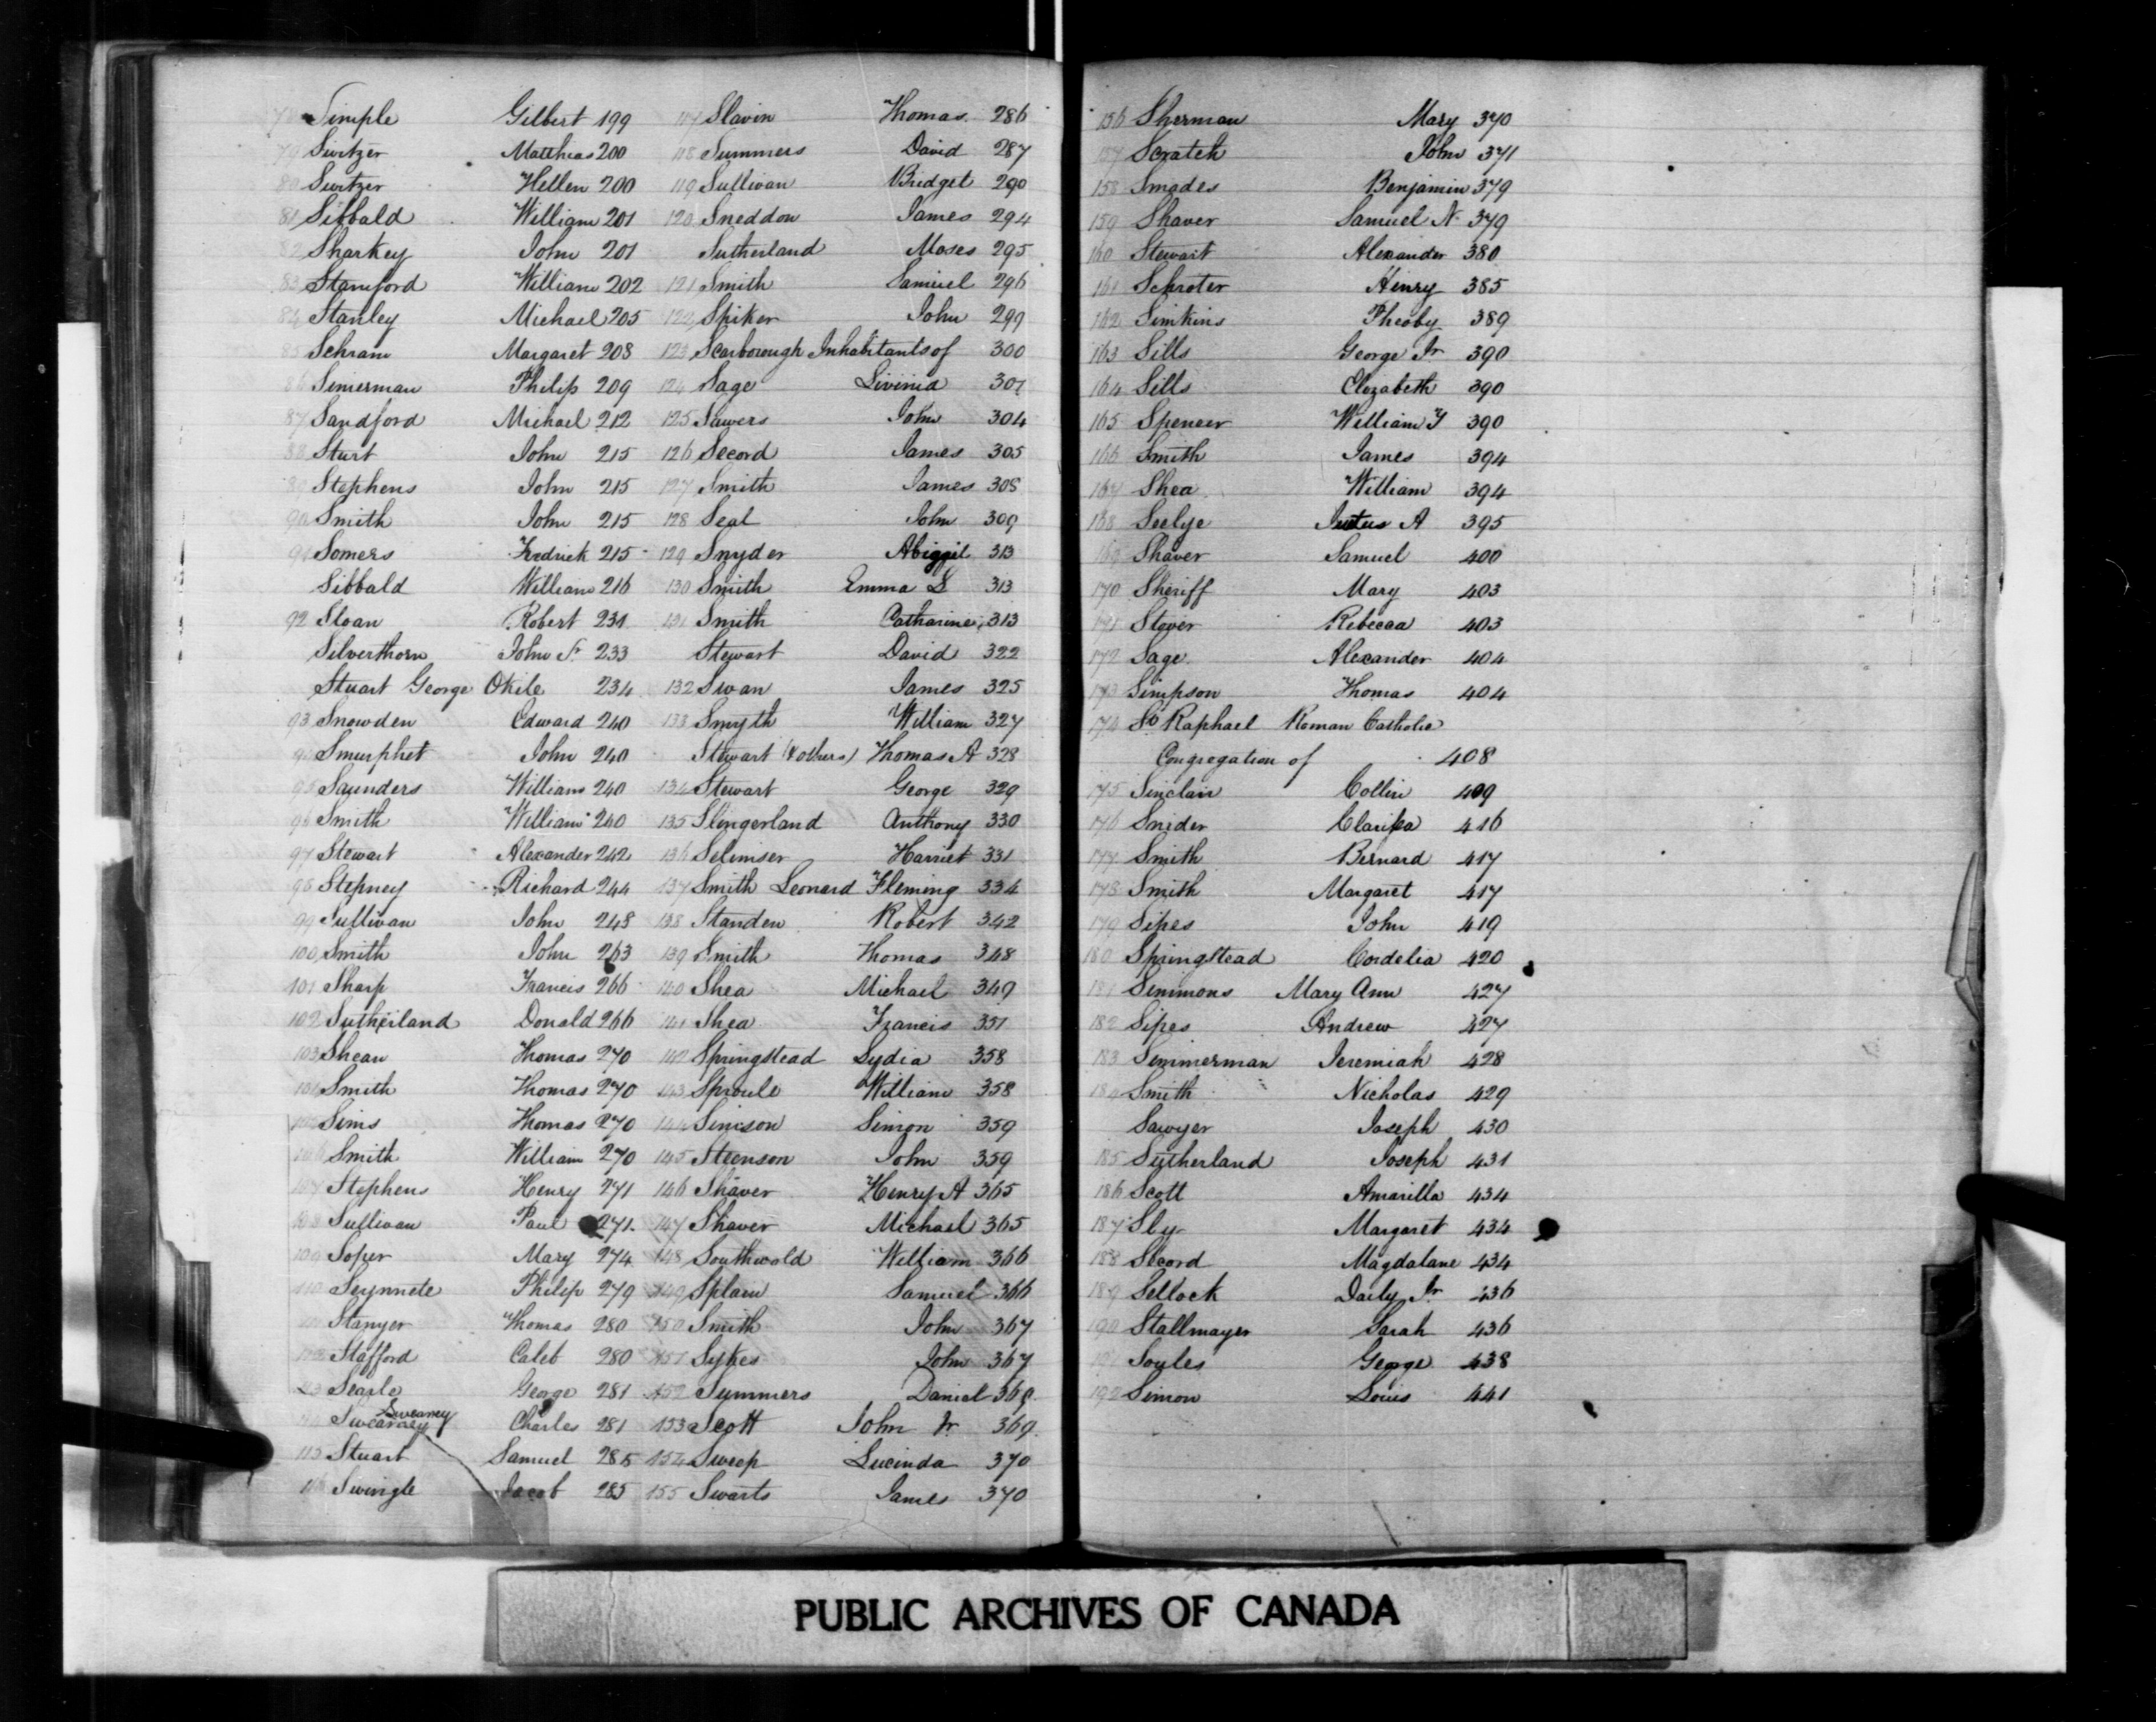 78 Simple Gilbert 199
79 Switzer Matthias 200
80 Switzer Hellen 200
81 Sibbald William 201
82 Sharkey John 201
83 Stamford William 202
84 Stanley Michael 205
85 Schram Margaret 208
86 Simerman Philip 209
87 Sandford Michael 212
88 Sturt John 215
89 Stephens John 215
90 Smith John 215
91 Somers Fredrick 215
Sibbald William 216
92 Sloan Robert 231
Silverthorn John 233
Stuart George Okile 234
93 Snowden Edward 240
94 Smurphet John 240
95 Saunders William 240
96 Smith William 240
97 Stewart Alexander 242
98 Stepney Richard 244
99 Sullivan John 248
100 Smith John 263
101 Sharp Francis 266
102 Sutherland Donald 266
103 Shean Thomas 270
104 Smith Thomas 270
105 Sims Thomas 270
106 Smith William 270
107 Stephens Henry 271
108 Sullivan Paul 271
109 Soper Mary 274
110 Philip 279
111 Stanyer Thomas 280
112 Stafford Caleb 280
113 Searle George 281
Sweaney
114 Charles 281
115 Stuart Samuel 285
116 Swingle Jacob 285
117 Slavin Thomas 286
118 Summers David 287
119 Sullivan Bridget 290
120 Sneddon James 294
Sutherland Moses 295
121 Smith Samuel 296
122 Spiker John 299
123 Scarborough Inhabitants of 300
124 Sage Livinia 301
125 Sawers John 304
126 Secord James 305
127 Smith James 308
128 Seal John 309
129 Snyder Abigail 313
130 Smith Emma S 313
131 Smith Catharine 313
Stewart David 322
132 Swan James 325
133 Smyth William 327
Stewart (& others) Thomas A 328
134 Stewart George 329
135 Slingerland Anthony 330
136 Selimser Harriet 331
137 Smith Leonard Fleming 334
138 Standen Robert 342
139 Smith Thomas 348
140 Shea Michael 349
141 Shea Francis 351
142 Springstead Lydia 358
143 Sproule William 358
144 Simson Simon 359
145 Steenson John 359
146 Shaver Henry A 365
147 Shaver Michael 365
148 Southwold William 366
149 Splain Samuel 366
150 Smith John 367
151 Sykes John 367
152 Summers Daniel 369
153 Scott John Jr 369
154 Sweep Lucinda 370
155 Swarts James 370
156 Sherman Mary 370
157 Scratch John 371
158 Smades Benjamin 379
159 Shaver Samuel N 379
160 Stewart Alexander 380
161 Schroter Henry 385
162 Simkins Pheoby 389
163 Sills George Jr 390
164 Sills Elizabeth 390
165 Spencer William 390
166 Smith James 394
167 Shea William 394
168 Seelye Justus A 395
169 Shaver Samuel 400
170 Sheriff Mary 403
171 Stover Rebecca 403
172 Sage Alexander 404
173 Simpson Thomas 404
174 St Raphael Roman Catholic
Congregation of 408
175 Sinclair Collin 409
176 Snider Clarissa 416
177 Smith Bernard 417
178 Smith Margaret 417
179 Sipes John 419
180 Springstead Cordelia 420
181 Simmons Mary Ann 427
182 Sipes Andrew 427
183 Simmerman Jeremiah 428
184 Smith Nicholas 429
Sawyer Joseph 430
185 Sutherland Joseph 431
186 Scott Amarilla 434
187 Sly Margaret 434
188 Secord Magdalane 434
189 Sellock Daily Jr 436
190 Stallmayer Sarah 436
191 Soules George 438
192 Simon Louis 441
PUBLIC ARCHIVES OF CANADA